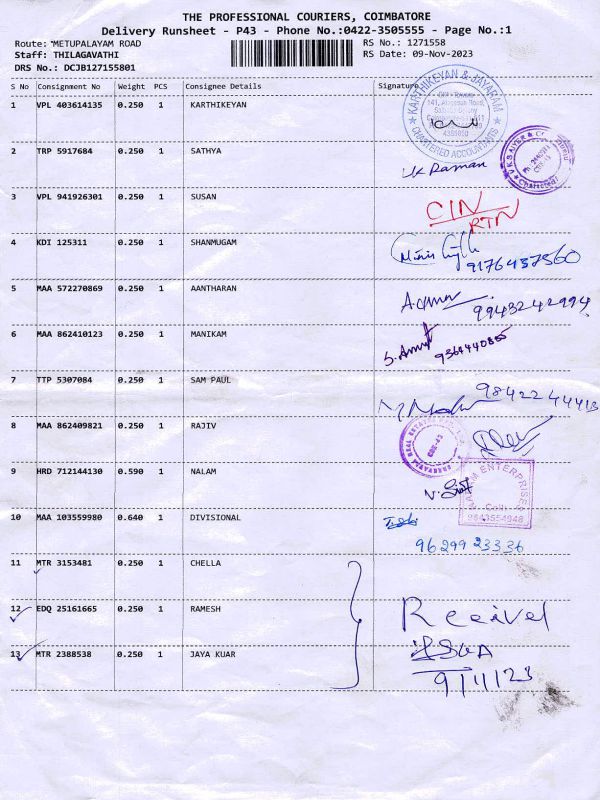 THE PROFESSIONAL COURIERS, COIMBATORE
Delivery Runsheet - P43 - Phone No.:0422-3505555 - Page No.:1
Route: METUPALAYAM ROAD RS No.: 1271558
Staff: THILAGAVATHI RS Date: 09-Nov-2023
DRS No.: DCJB127155801
S No Consignment No Weight PCS Consignee Details Signature
KARTHIKEYAN & JAYARAM
CHARTERED ACCOUNTANTS
1 VPL 403614135 0.250 1 KARTHIKEYAN
2 TRP 5917684 0.250 1 SATHYA
V.K Raman
3 VPL 941926301 0.250 1 SUSAN
CIN
RTN
4 KDI 125311 0.250 1 SHANMUGAM
9176437560
5 MAA 572270869 0.250 1 AANTHARAN
9943242994
6 MAA 862410123 0.250 1 MANIKAM
S. Amut
7 TTP 5307084 0.250 1 SAM PAUL
9842244413
8 MAA 862409821 0.250 1 RAJIV
CBE-43
9 HRD 712144130 0.590 1 NALAM
NALAM ENTERPRISES
9843554948
10 MAA 103559980 0.640 1 DIVISIONAL
9629923336
11 MTR 3153481 0.250 1 CHELLA
12 EDQ 25161665 0.250 1 RAMESH
Received
13 MTR 2388538 0.250 1 JAYA KUAR
9/11/23